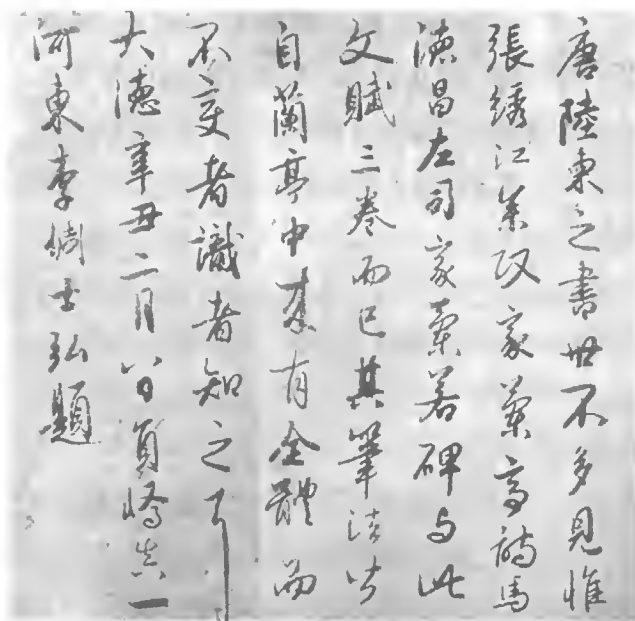 唐陸柬之書世不多見惟
張綉江叅政家蘭亭詩馬
德昌左司家蘭若碑与此
文賦三卷而已其筆法皆
自蘭亭中来有全體而
不变者識者知之耳
大德辛丑二月八日員嶠真一
河東李倜士弘題